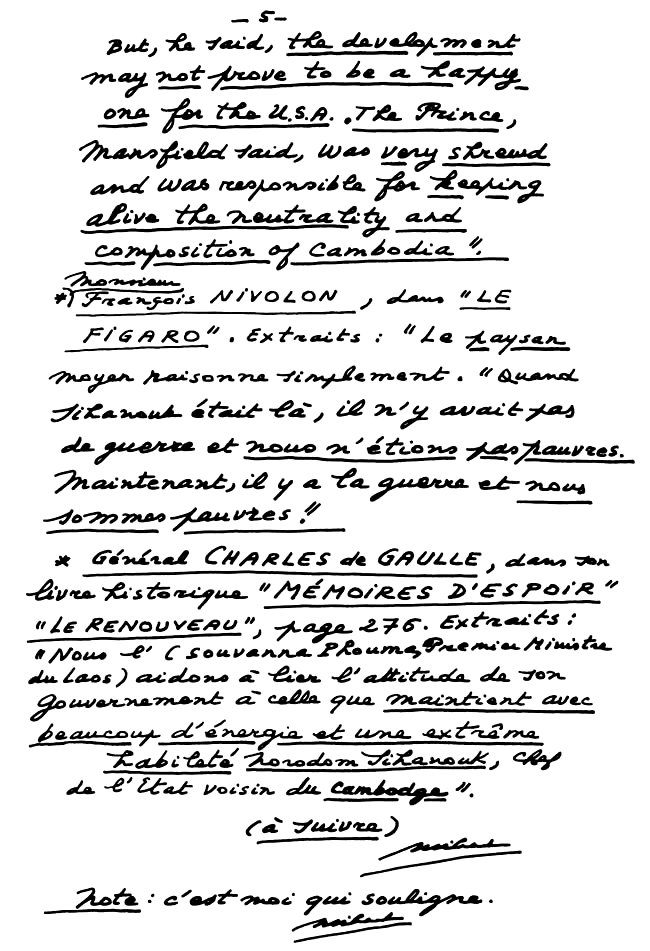 - 5 -
But, he said, the development
may not prove to be a happy
one for the U.S.A. . The Prince,
Mansfield said, was very shrewd
and was responsible for keeping
alive the neutrality and
composition of Cambodia".
Monsieur
*) François NIVOLON, dans "LE
FIGARO". Extraits : "Le paysan
moyen raisonne simplement. "Quand
Sihanouk était là, il n'y avait pas
de guerre et nous n'étions pas pauvres.
Maintenant, il y a la guerre et nous
sommes pauvres."
* Général CHARLES de GAULLE, dans son
livre historique "MÉMOIRES D'ESPOIR"
"LE RENOUVEAU", page 276. Extraits :
"Nous l' (Souvanna Phouma, Premier Ministre
du Laos) aidons à lier l'attitude de son
Gouvernement à celle que maintient avec
beaucoup d'énergie et une extrême
habileté Norodom Sihanouk, Chef
de l'Etat voisin du Cambodge".
(à suivre)
Note : c'est moi qui souligne.